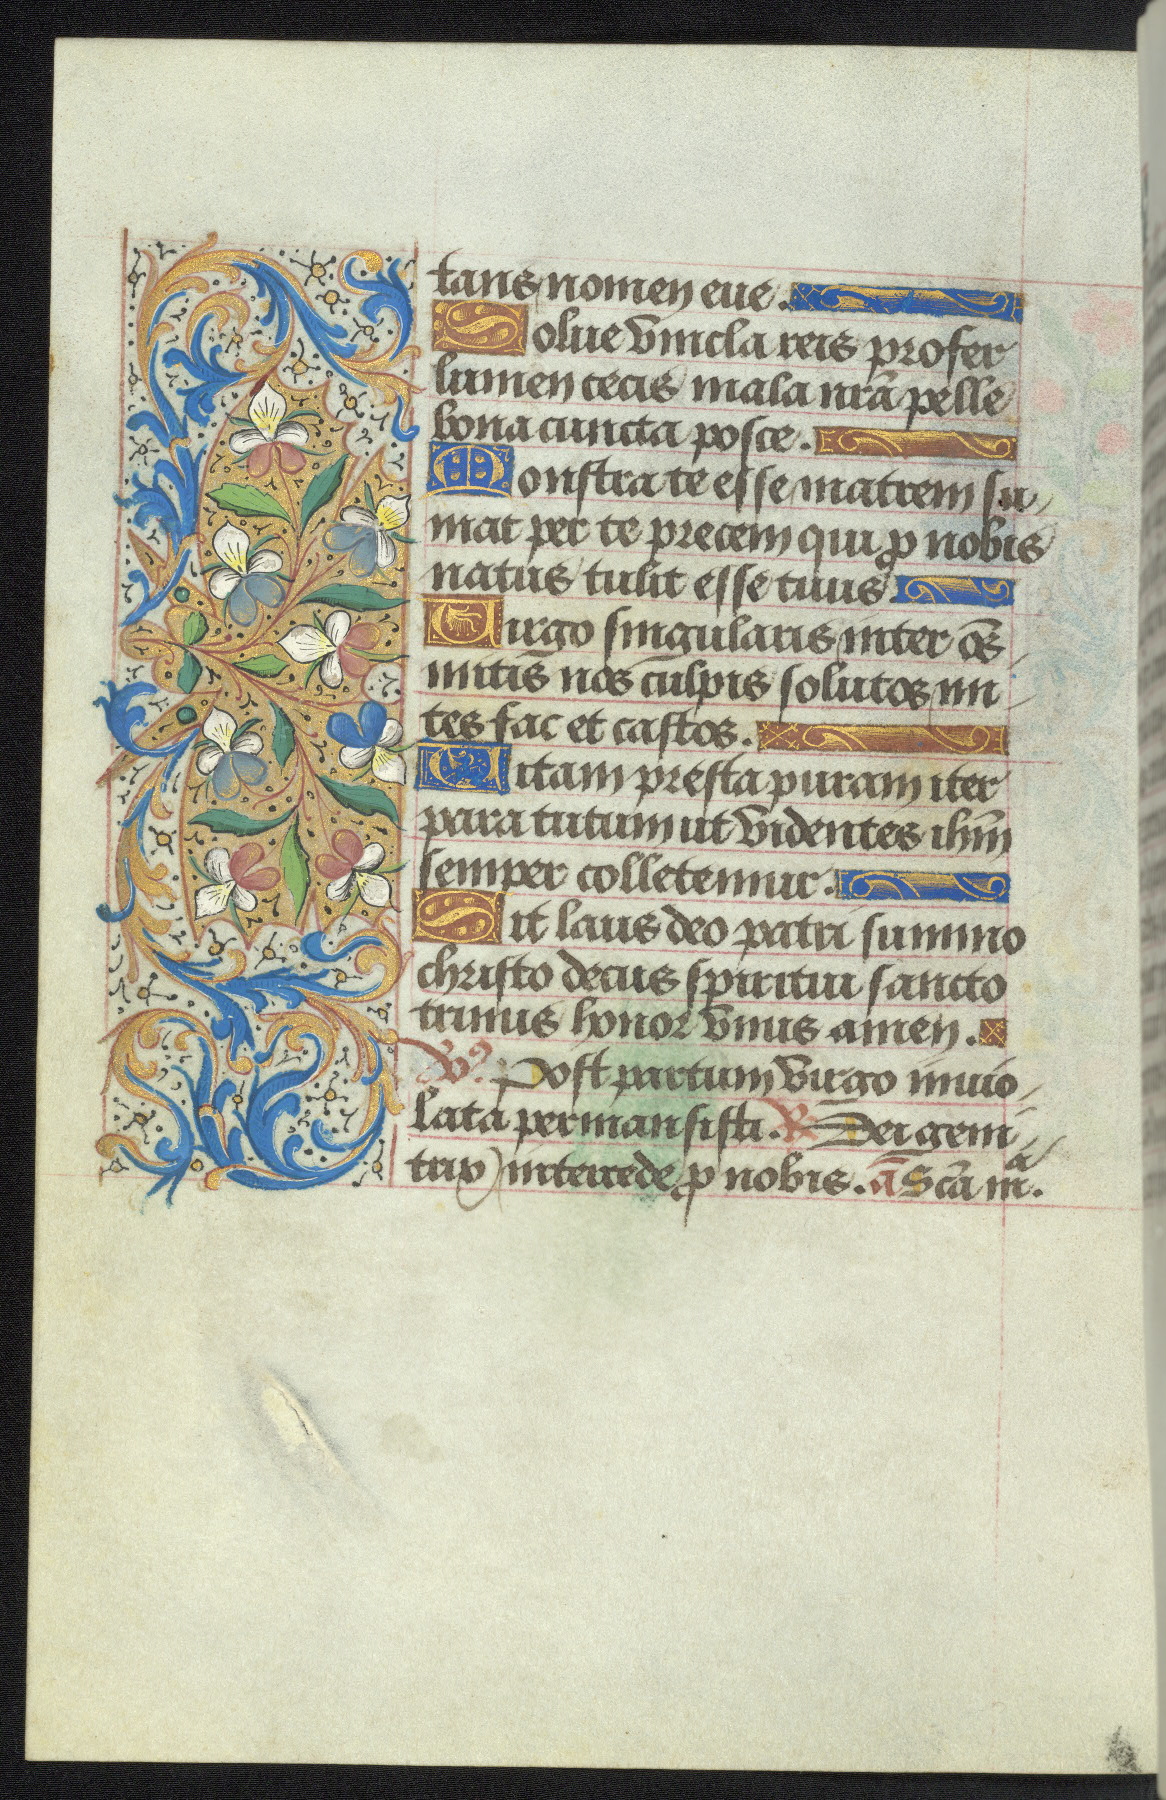 tans nomen eue.
Solue vincla reis profer
lumen cecis mala nr̄a pelle
bona cuncta posce.
Monstra te esse matrem su
mat per te precem qui ꝓ nobis
natus tulit esse tuus.
Uirgo singularis inter oēs
mitis nos culpis solutos mi
tes fac et castos.
Uitam presta puram iter
para tutum ut videntes ihm̄
semper colletemur.
Sit laus deo patri summo
christo decus spiritui sancto
trinus honor vnus amen.
V̕s. Post partum virgo inuio
lata permansisti. R̕ Dei geni
trix intercede ꝓ nobis. ā Scā mͣ.